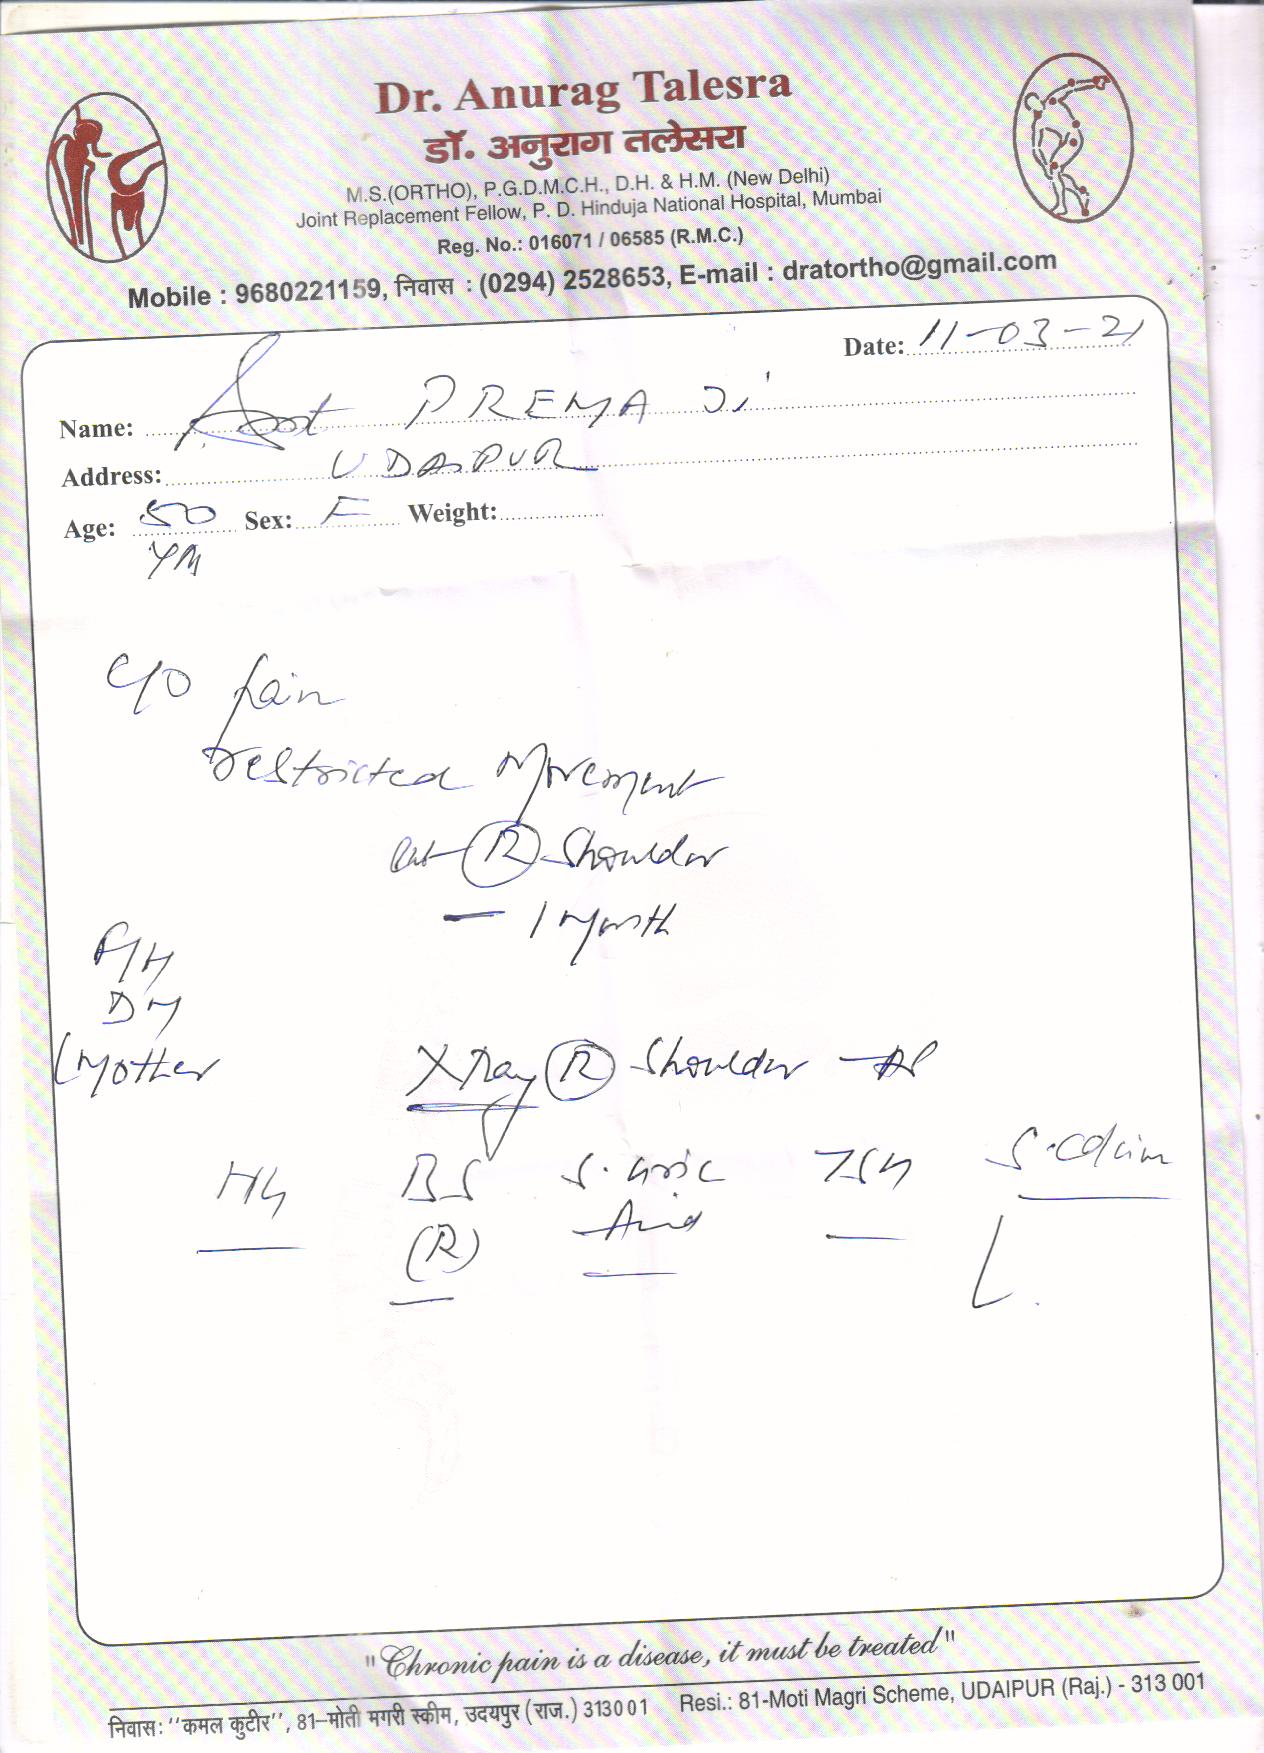 Dr. Anurag Talesra
डॉ. अनुराग तलेसरा
M.S.(ORTHO), P.G.D.M.C.H., D.H. & H.M. (New Delhi)
Joint Replacement Fellow, P. D. Hinduja National Hospital, Mumbai
Reg. No.: 016071 / 06585 (R.M.C.)
Mobile : 9680221159, निवास : (0294) 2528653, E-mail : dratortho@gmail.com
Date: 11-03-21
Name: PREMA Ji
Address: UDAIPUR
Age: 50 Sex: F Weight:
C/O Pain
restricted Movement
at (R) Shoulder
- 1 Month
F/H
DM
(Mother
X Ray (R) Shoulder - AP
BS S. Uric
(R) Acid
"Chronic pain is a disease, it must be treated"
निवास: ''कमल कुटीर'', 81-मोती मगरी स्कीम, उदयपुर (राज.) 313001 Resi.: 81-Moti Magri Scheme, UDAIPUR (Raj.) - 313 001